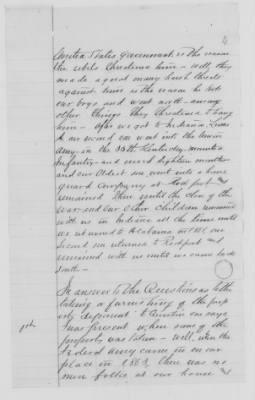 United States Government, is the reason
the rebels threatened him — well, they
made a good many harsh threats
against him is the reason he took
our boys and went north — among
other things they threatened to hang
him — After we got to Indiana,
our second son went into the Union
army in the 35th Kentucky mounted
Infantry and served eighteen months
and our oldest son went into a home
guard company at Rockport and
remained there until the close of the
war and our other children remained
with us in Indiana all the time until
we returned to Alabama our
second son returned to Rockport and
remained with us until we came back
South —
In answer to the Question as to the
taking or furnishing of the prop
erty deponent to Question one says
I was present when some of the
property was taken — Well, when the
Federal Army came in on our
place in 1863, there was no
men folks at our house and